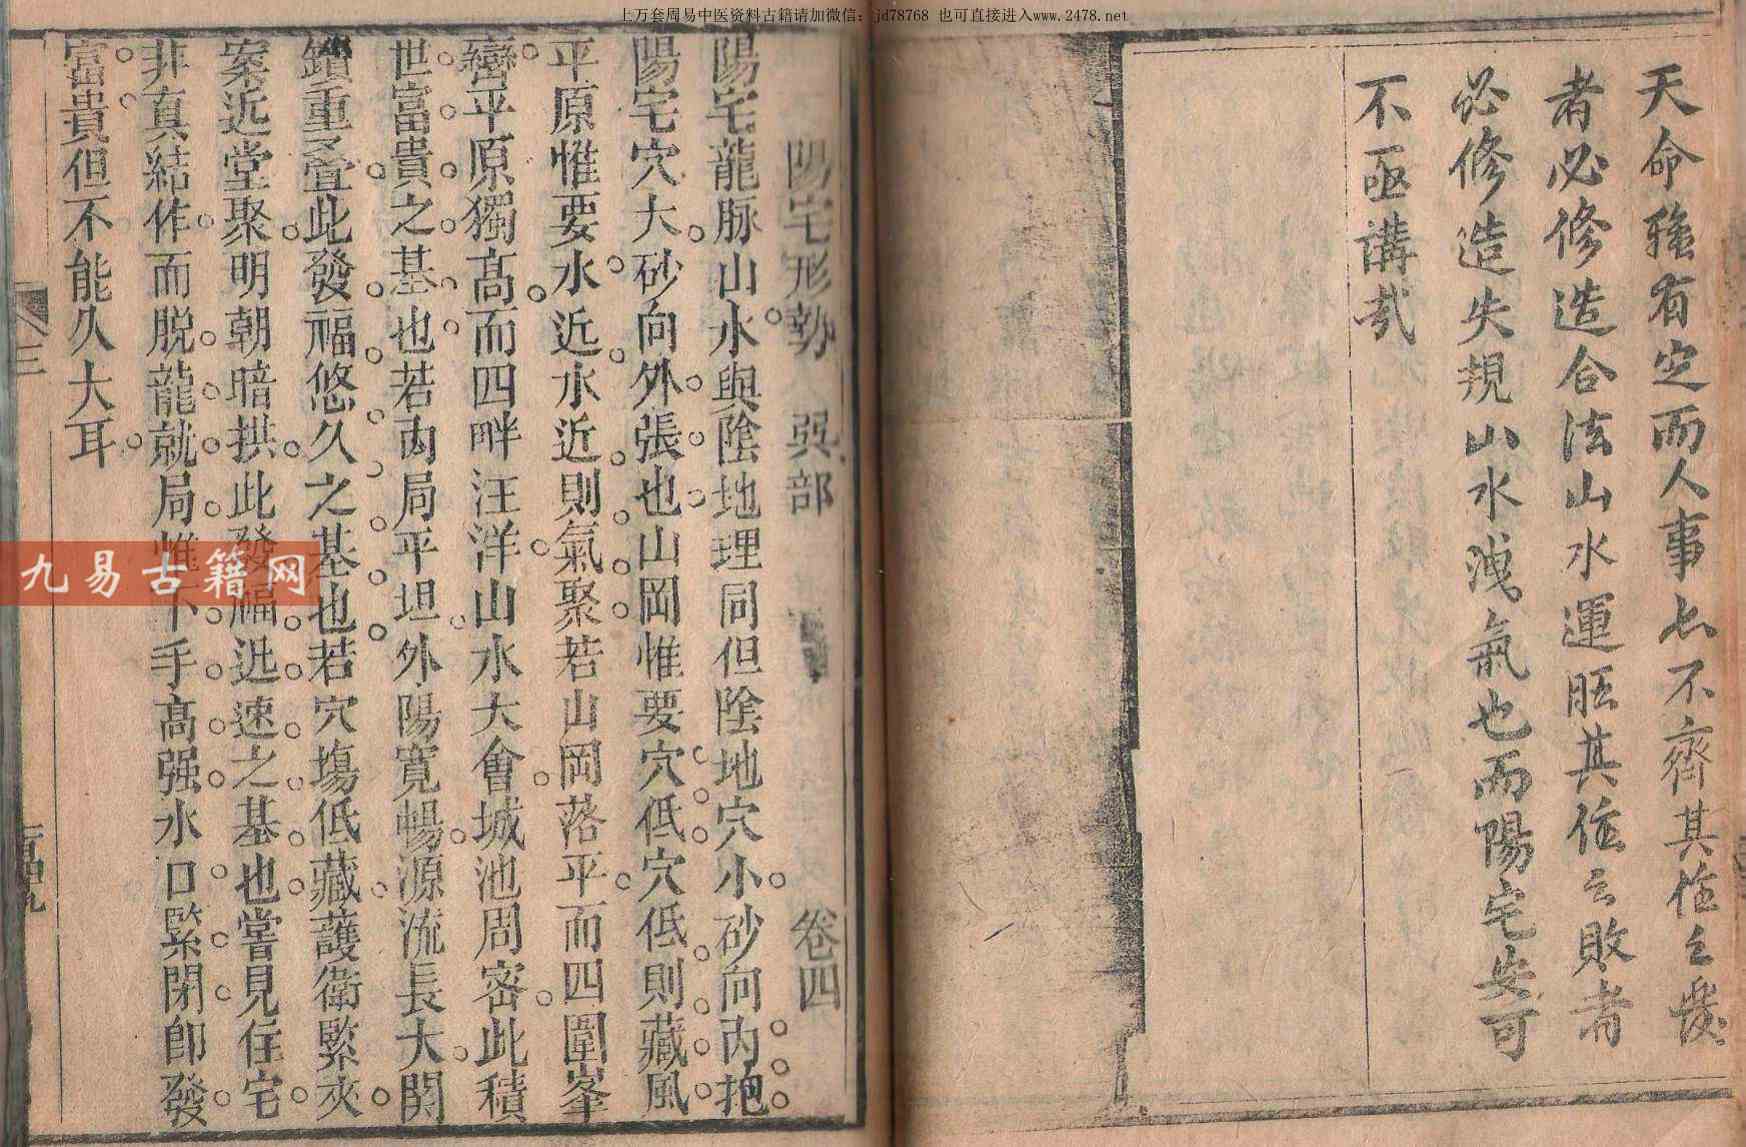 上万套周易中医资料古籍请加微信：jd78768 也可直接进入www.2478.net
天命雖有定而人事亦不齊其住之發
者必修造合法山水運旺其住之敗者
必修造失規山水洩氣也而陽宅安可
不亟講哉
陽宅形勢 巽部 卷四
陽宅龍脉山水與陰地理同但陰地穴小砂向內抱
陽宅穴大砂向外張也山岡惟要穴低穴低則藏風
平原惟要水近水近則氣聚若山岡落平而四圍峯
巒平原獨高而四畔汪洋山水大會城池周密此積
世富貴之基也若內局平坦外陽寬暢源流長大關
鎖重疊此發福悠久之基也若穴塲低藏護衛緊夾
案近堂聚明朝暗拱此發福迅速之基也嘗見住宅
非真結作而脱龍就局惟下手高强水口緊閉即發
富貴但不能久大耳
三
九易古籍网